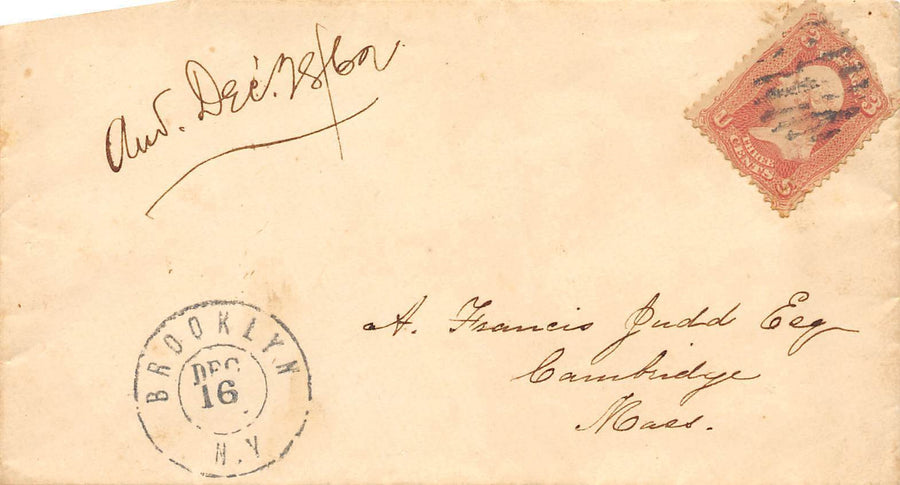 Ans. Dec. 28/62
3
3
U
S
THREE
CENTS
BROOKLYN
DEC
16
N.Y
A. Francis Judd Esq
Cambridge
Mass.